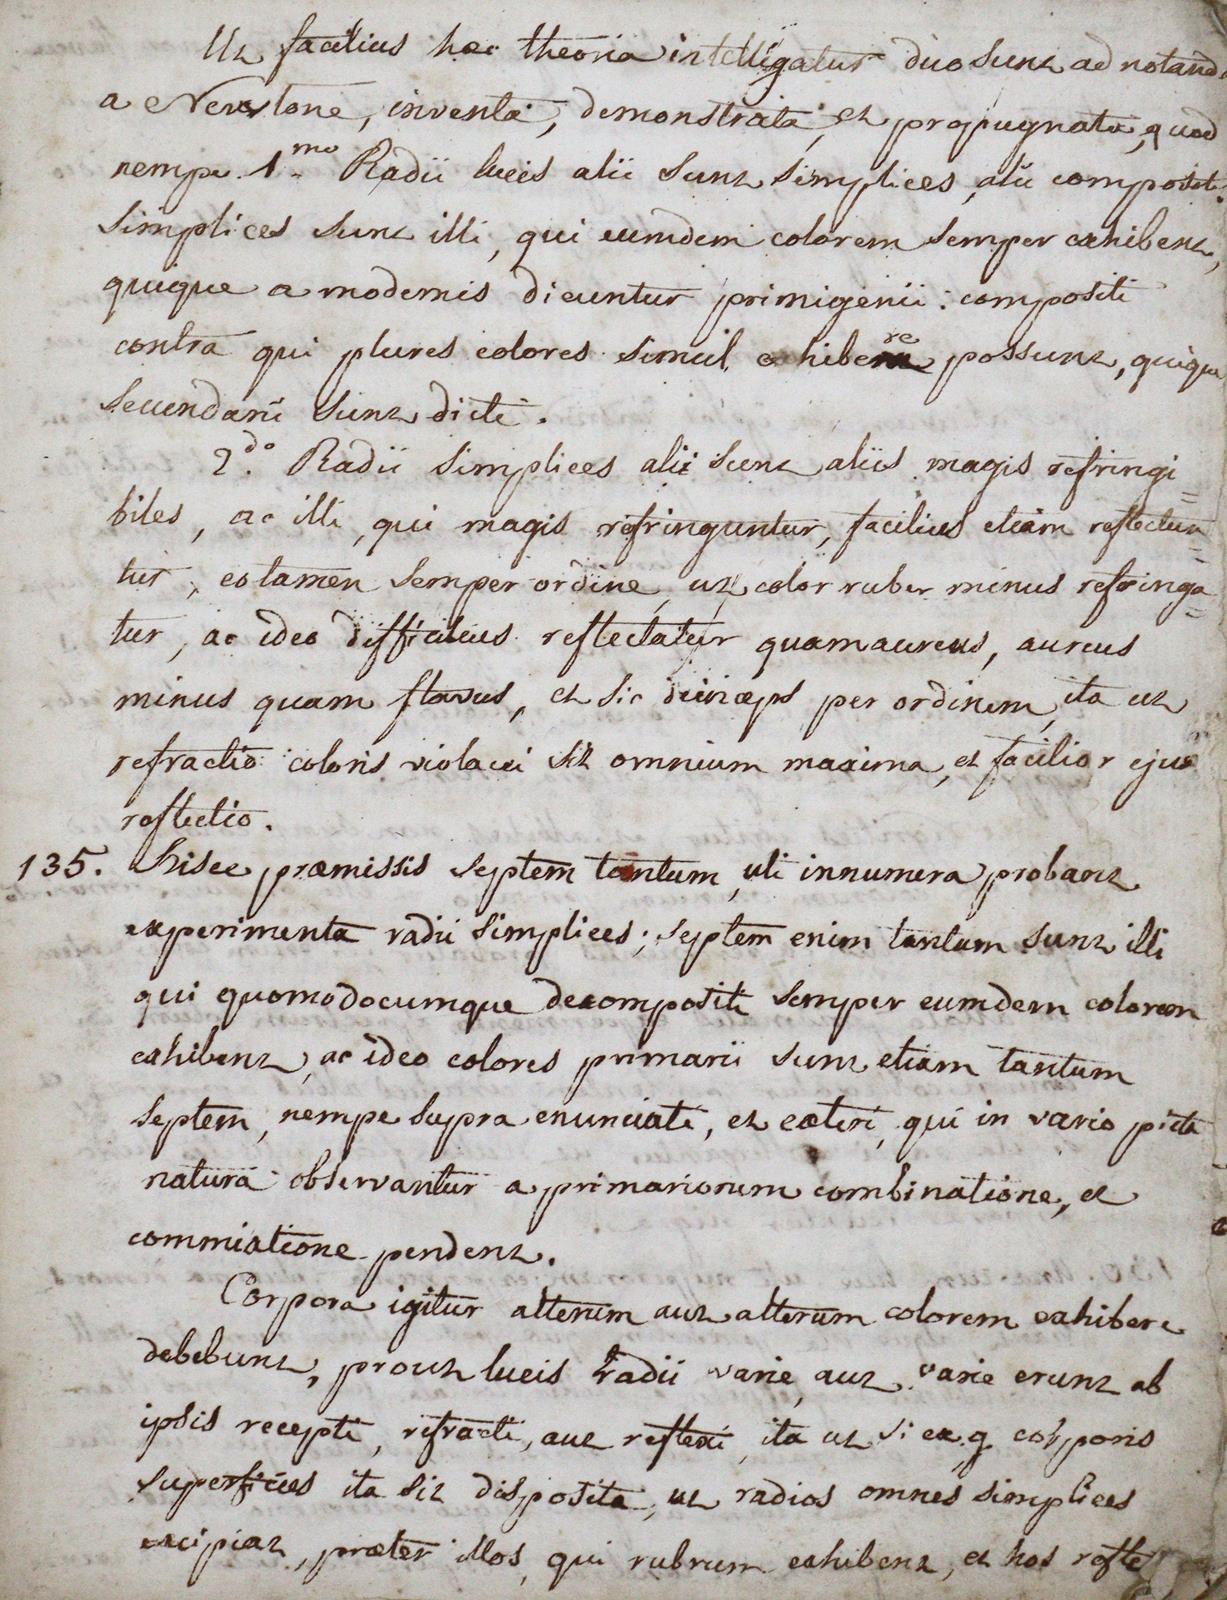 Ut facilius hæc theoria intelligatur duo sunt ad notand
a Newtone, inventa, demonstrata, et propugnata, quod
nempe 1.mo Radii lucis alii sunt simplices, alii compositi.
Simplices sunt illi, qui eumdem colorem semper exhibent,
quique a modernis dicuntur primigenii: compositi
contra qui plures colores simul exhibere possunt, quique
secundarii sunt dicti.
2.do Radii simplices alii sunt aliis magis refringi=
biles, ac illi, qui magis refringuntur, facilius etiam reflectun=
tur, eo tamen semper ordine, ut color ruber minus refringa=
tur, ac ideo difficilius reflectatur quam aureus, aureus
minus quam flavus, et sic deinceps per ordinem, ita ut
refractio coloris violacei sit omnium maxima, et facilior ejus
reflectio.
135. Hisce præmissis septem tantum, uti innumera probant
experimenta radii simplices; septem enim tantum sunt illi
qui quomodocumque decompositi semper eumdem colorem
exhibent, ac ideo colores primarii sunt etiam tantum
septem, nempe supra enunciati, et cæteri, qui in vario picta
natura observantur a primariorum combinatione, et
commixtione pendent.
Corpora igitur alterum aut alterum colorem exhibere
debebunt, prout lucis radii varie, aut varie erunt ab
ipsis recepti, refracti, aut reflexi, ita ut si ex. g. corporis
superficies ita sit disposita, ut radios omnes simplices
excipiat, præter illos, qui rubrum exhibent, et hos refle